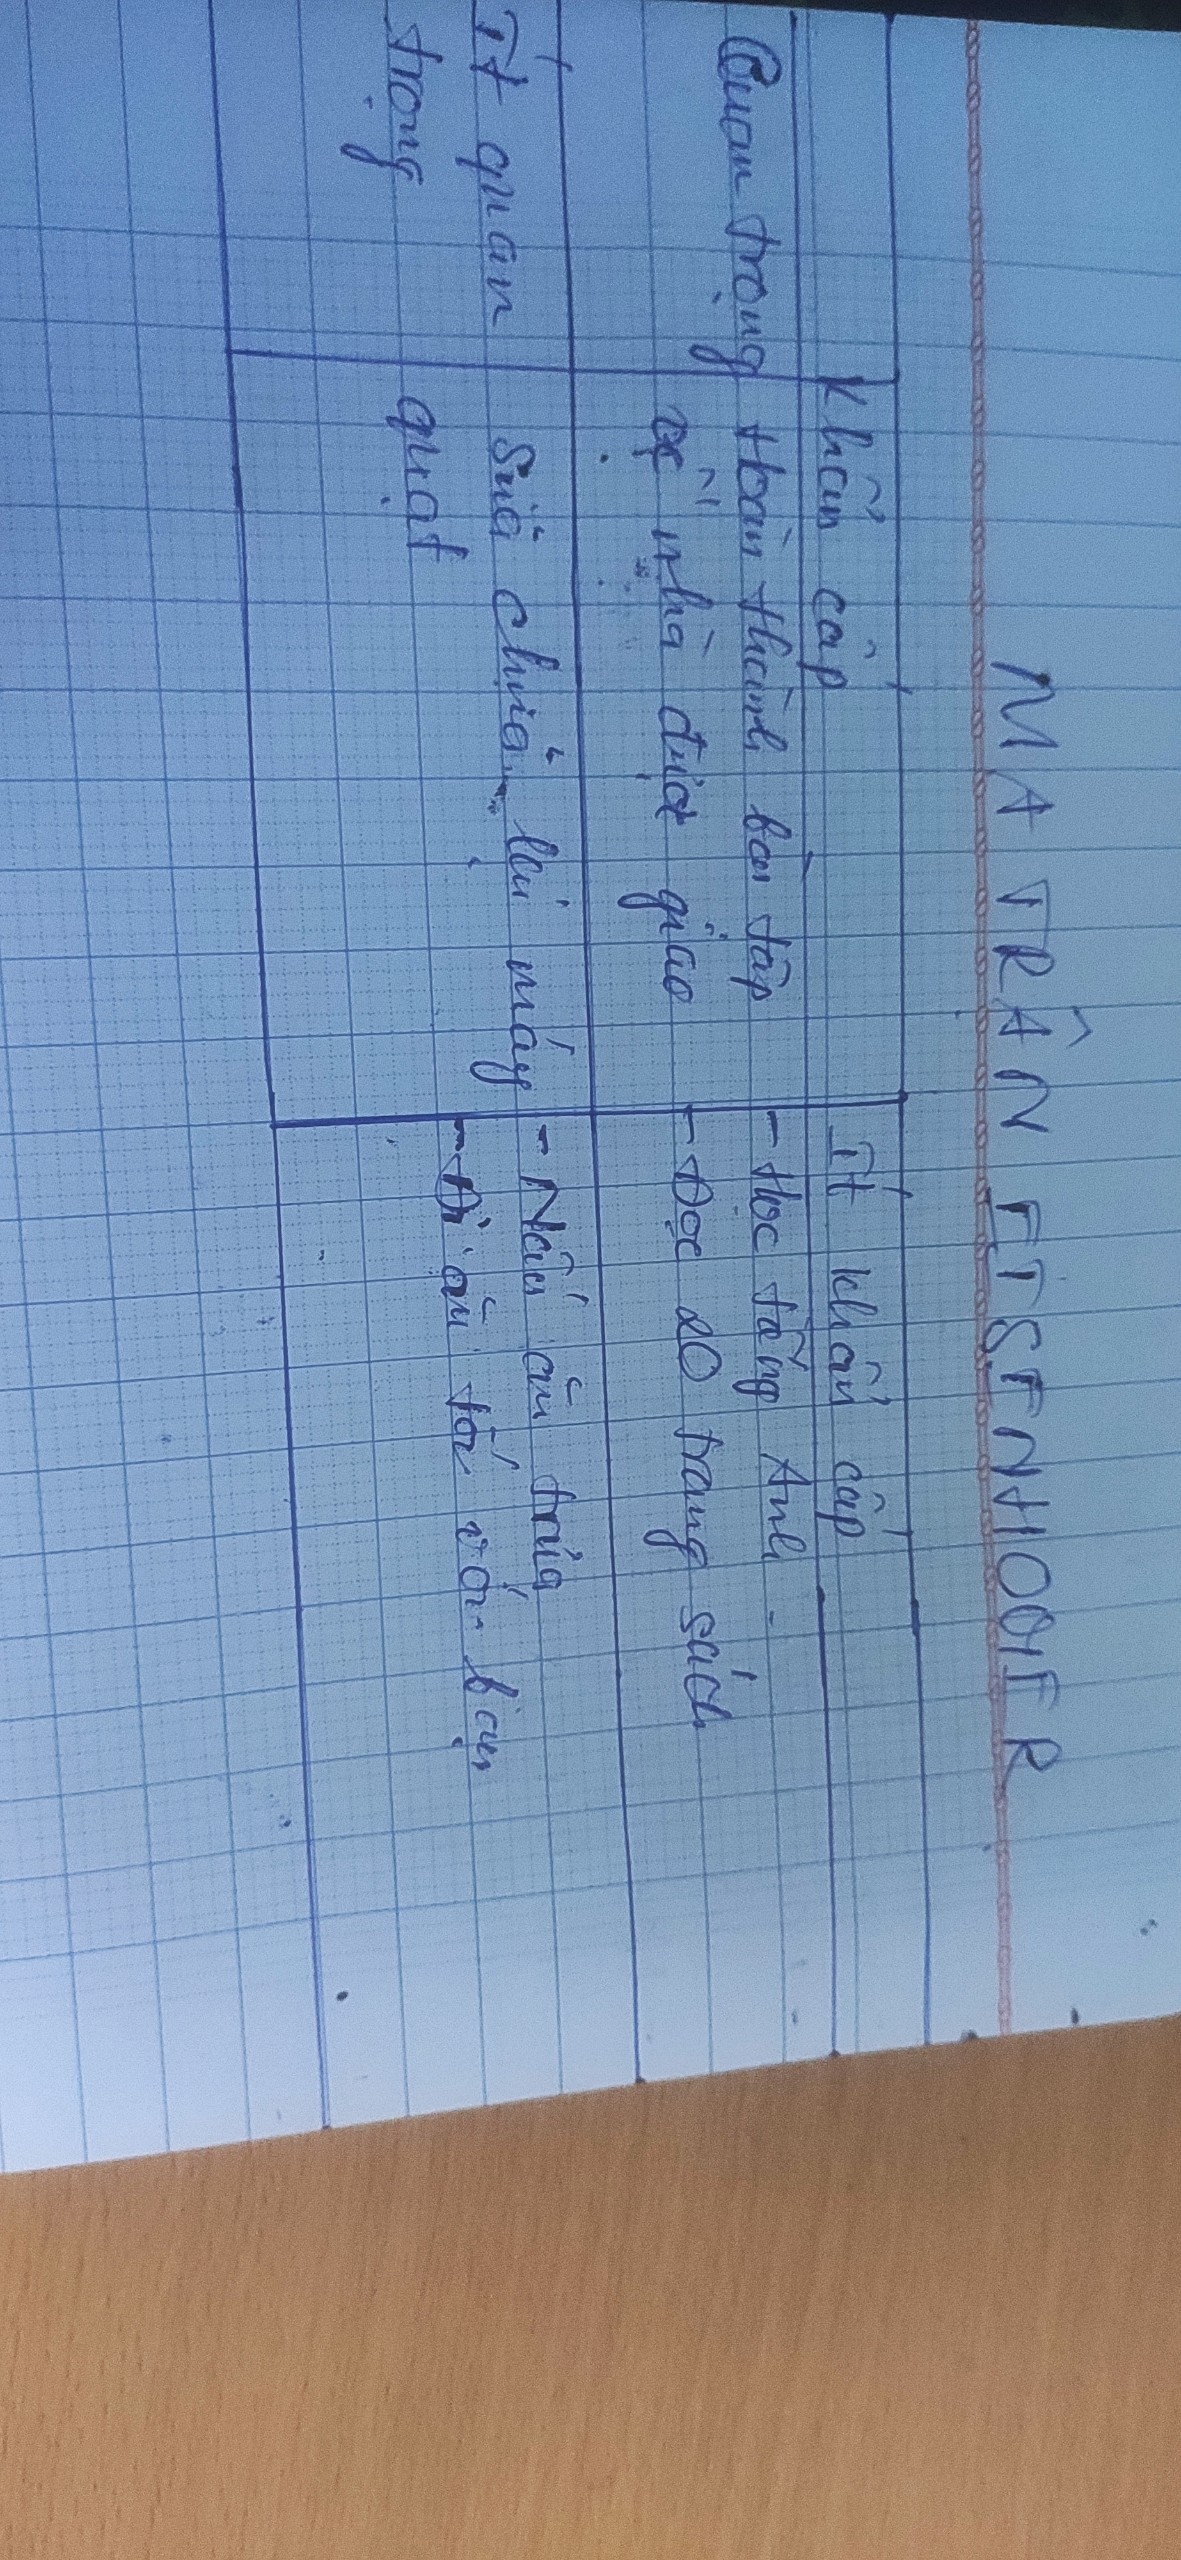 MA TRẬN EISENHOOIER
Khẩn cấp
Ít khẩn cấp
Quan trọng
Hoàn thành bài tập
về nhà được giao
- Học tiếng Anh
- Đọc 20 trang sách
Ít quan
trọng
Sửa chữa lại máy
quạt
- Nấu ăn trưa
- Đi ăn tối với bạn